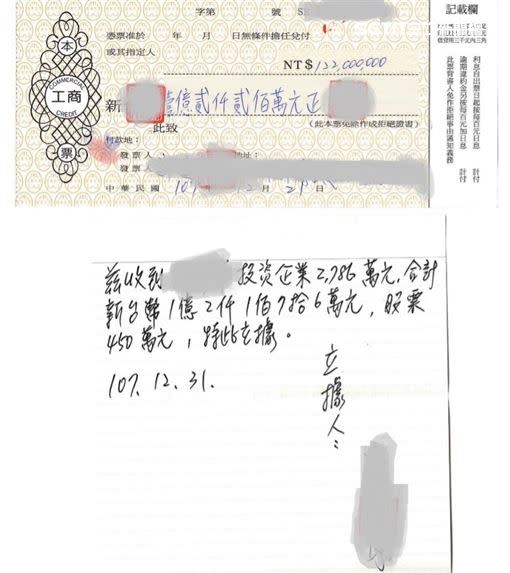 字第 號
憑票准於 年 月 日無條件擔任兌付
或其指定人
NT$122,000,000
新 壹億貳仟貳佰萬元正
此致 (此本票免除作成拒絕證書)
付款地：
發票人 地址：
發票
中華民國 107年12月29日
本
COMMERCIAL
工商
CREDIT
票
記載欄
利息自出票日起按每百元日息 計付
逾期違約金另按每百元加日息 計付
此票背書人免作拒絕事由通知義務
茲收到 投資企業2,786萬元，合計
新台幣1億2仟1佰7拾6萬元，股票
450萬元，特此立據。
107.12.31.
立據人：